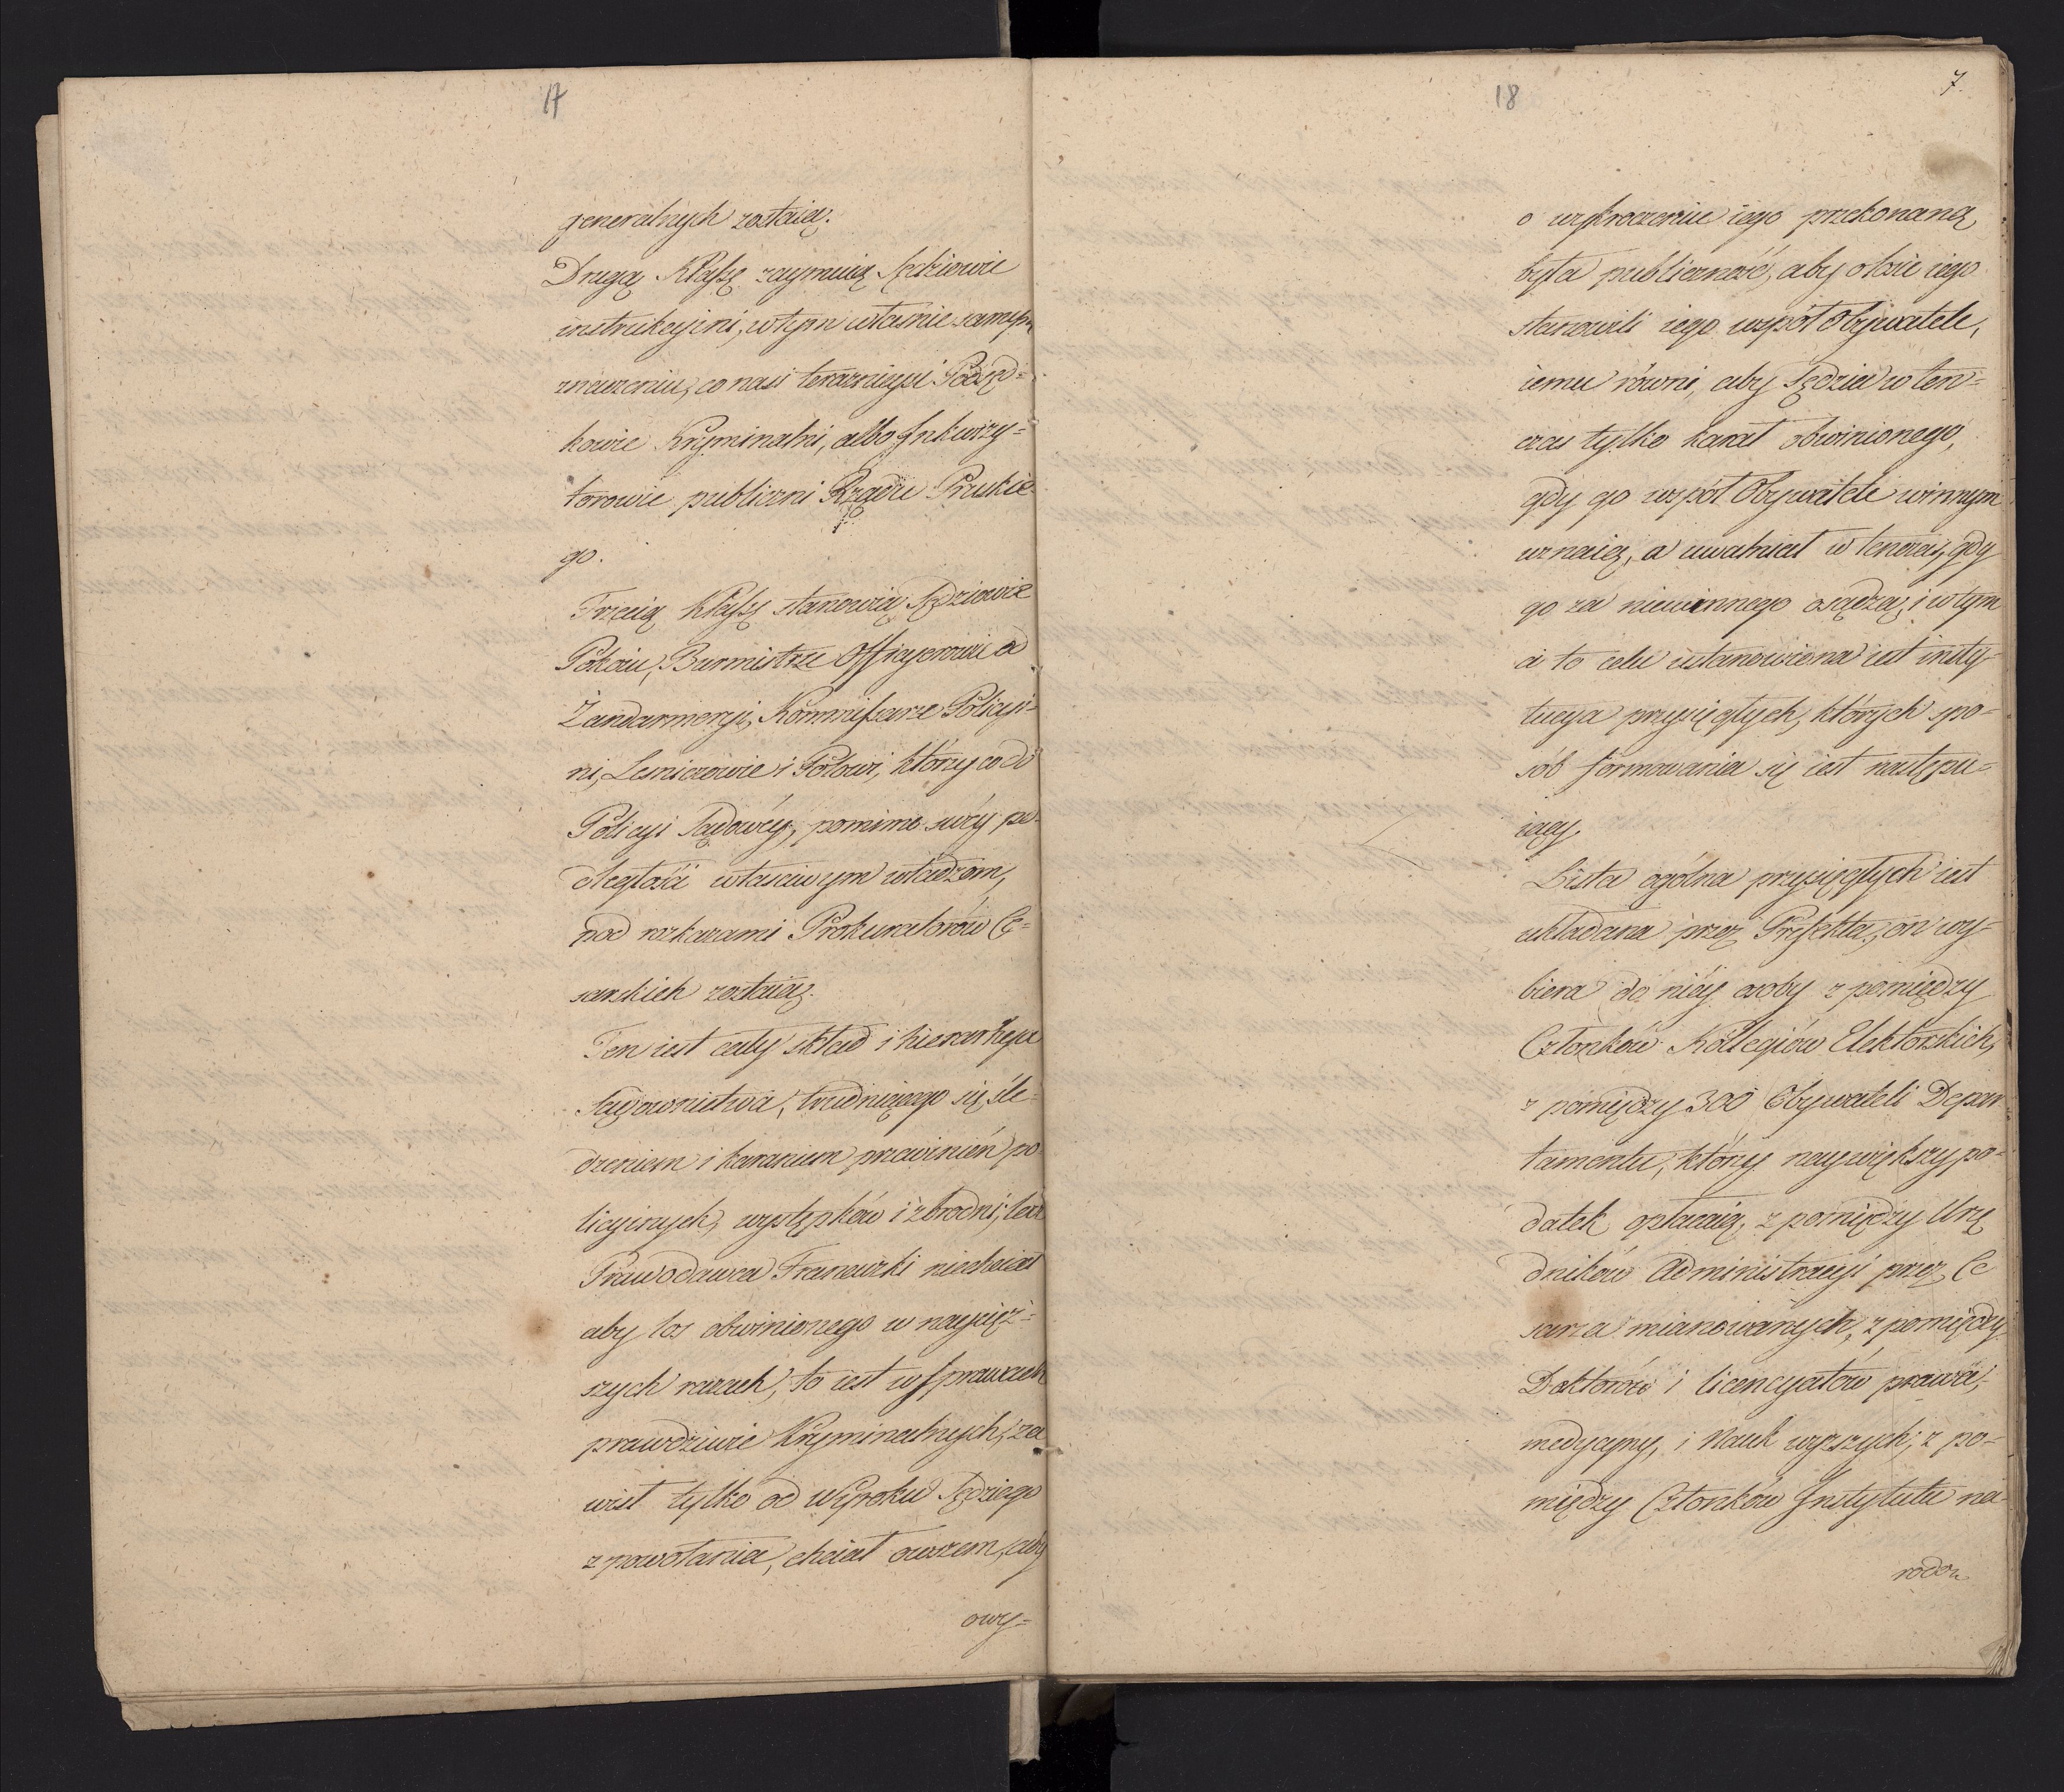 17
generalnych zostaią.
Drugą Klassę zaymuią Sędziowie
instrukcyini, w tym właśnie samym
znaczeniu, co nasi teraźnieysi Podsęd=
kowie Kryminalni, albo Inkwizy=
torowie publiczni Rządu Pruskie
go.
Trzecią Klassę stanowią Sędziowie
Pokoiu, Burmistrze Officyerowie
Żandarmeryi, Kommissarze Policyi=
ni, Leśniczowie i Polowi, którzy co do
Policyi Sądowéy, pomimo swéy po=
dległości właściwym władzom,
pod rozkazami Prokuratorów Ce=
sarskich zostaią.
Ten iest cały skład i hierarhya
Sądownictwa, trudniącego się śle=
dzeniem i karaniem przewinień po
licyinych, występków i zbrodni; lecz
Prawodawca Francuzki niechciał
aby los obwinionego w naycięż=
szych razach, to iest w sprawach
prawdziwie Kryminalnych, za
wisł tylko od Wyroku Sędziego
z powołania, chciał owszem, aby
owy=
18
7.
o wykroczeniu iego przekonaną
była publiczność, aby o losie iego
stanowili iego współ Obywatele,
iemu równi, aby Sędzia w ten=
czas tylko karał obwinionego,
gdy go współ Obywatele winnym
uznaią, a uwalniał w tenczas, gdy
go za niewinnego osądzą, i w tym
ci to celu ustanowiona iest insty=
tucya przysięgłych, których spo=
sób formowania się iest następu=
iący.
Lista ogólna przysięgłych iest
układana przez Prefekta, on wy=
biera do niéy osoby z pomiędzy
Członków Kollegiów Elektorskich,
z pomiędzy 300 Obywateli Depar
tamentu, którzy naywiększy po=
datek opłacaią, z pomiędzy Urzę
dników Administracyi przez Ce
sarza mianowanych, z pomiędzy
Doktorów i licencyatów prawa,
medycyny, i Nauk wyższych; z po=
między Członków Instytutu na
rodow